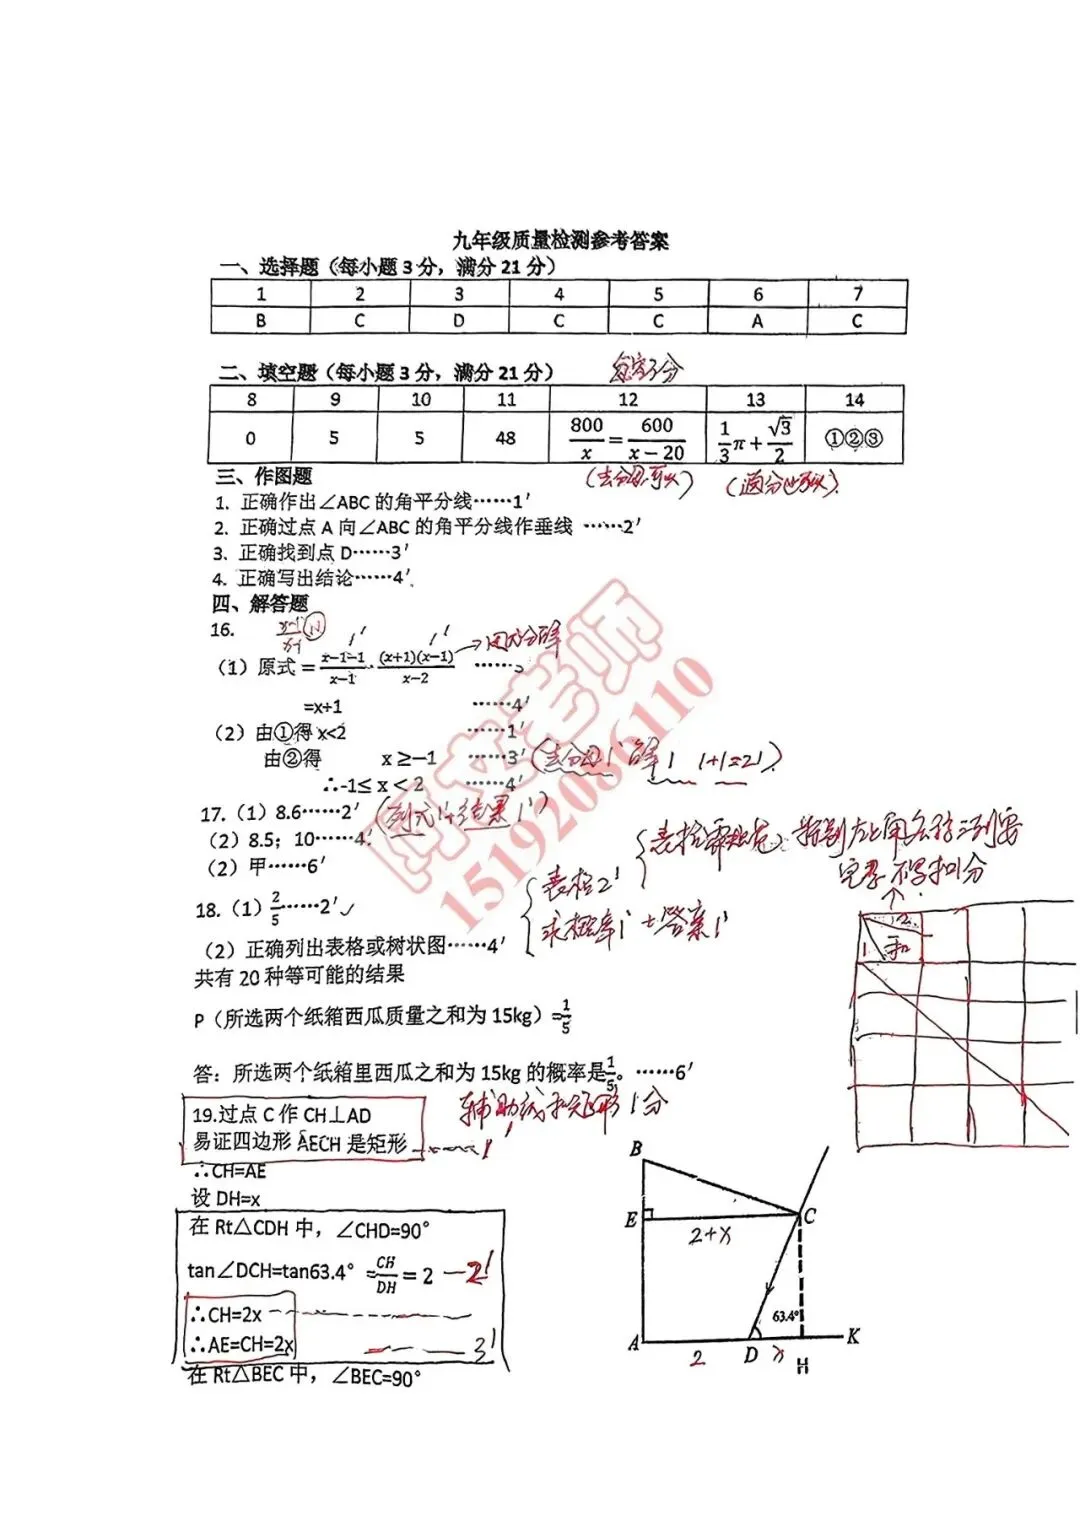 九年级质量检测参考答案
一、选择题（每小题3分，满分21分）
1 2 3 4 5 6 7
B C D C C A C
二、填空题（每小题3分，满分21分） 每空3分
8 9 10 11 12 13 14
0 5 5 48 800/x=600/(x−20) 1/3π+√3/2 ①②③
（去分母可以） （通分也可以）
三、作图题
1. 正确作出∠ABC的角平分线……1′
2. 正确过点A向∠ABC的角平分线作垂线 ……2′
3. 正确找到点D……3′
4. 正确写出结论……4′
四、解答题
16.
1′ 1′ →因式分解
（1）原式=(x−1−1)/(x−1)·(x+1)(x−1)/(x−2) ……3
=x+1 ……4′
（2）由①得x<2 ……1′
由②得 x≥−1 ……3′（去分母1′ 解1 1+1=2′）
∴-1≤x<2 ……4′
17.（1）8.6……2′（列式1′+结果1′）
（2）8.5；10……4′
（2）甲……6′
18.（1）2/5……2′✓
表格2′
求概率1′+答案1′
（2）正确列出表格或树状图……4′
共有20种等可能的结果
P（所选两个纸箱西瓜质量之和为15kg）=1/5
答：所选两个纸箱里西瓜之和为15kg的概率是1/5。……6′
1 2 和
19.过点C作CH⊥AD 辅助线和矩形1分
易证四边形AECH是矩形 1′
∴CH=AE
设DH=x
在Rt△CDH中，∠CHD=90°
tan∠DCH=tan63.4°=CH/DH=2 —2′
∴CH=2x
∴AE=CH=2x 3′
在Rt△BEC中，∠BEC=90°
B
E C
2+x
63.4°
A D H K
2 x
阿文老师
15192086110